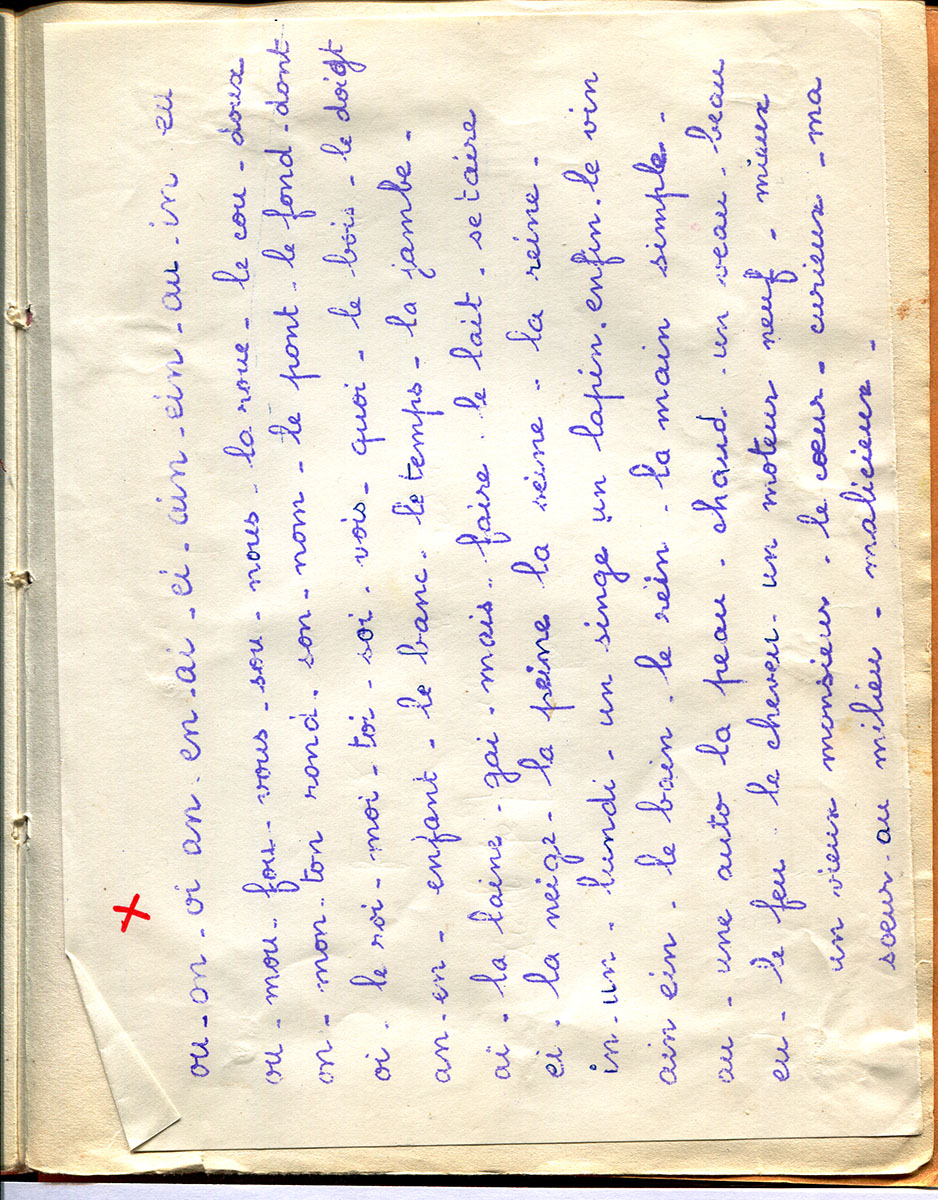 ou - on - oi an - en - ai - ei - ain - ein - au - in eu
ou - mou - fou - vous - sou - nous - la roue - le cou - doux
on - mon - ton rond - son - nom - le pont - le fond - dont
oi - le roi - moi - toi - soi - vois - quoi - le bois - le doigt
an - en - enfant - le banc - le temps - la jambe -
ai - la laine - gai - mais - faire - le lait - se taire
ei - la neige - la peine la veine - la reine -
in - un - lundi - un singe un lapin - enfin - le vin
ain ein - le bain - le rein - la main simple -
au - une auto la peau - chaud - un veau - beau
eu - le feu le cheveu - un moteur neuf - mieux
un vieux monsieur - le cœur - curieux - ma
sœur - au milieu - malicieux -